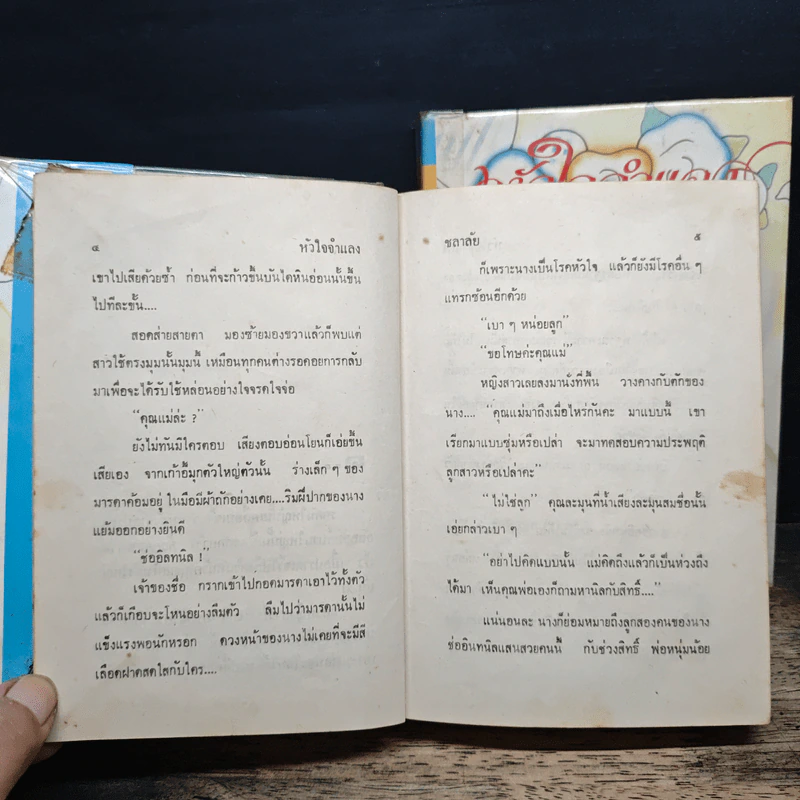 หัวใจจำแลง
๔ หัวใจจำแลง
เขาไปเสียด้วยซ้ำ ก่อนที่จะก้าวขึ้นบันไดหินอ่อนนั้นขึ้น
ไปทีละขั้น....
สอดส่ายสายตา มองซ้ายมองขวาแล้วก็พบแต่
สาวใช้ตรงมุมนั้นมุมนี้ เหมือนทุกคนต่างรอคอยการกลับ
มาเพื่อจะได้รับใช้หล่อนอย่างใจจรดใจจ่อ
“คุณแม่ล่ะ ?”
ยังไม่ทันมีใครตอบ เสียงตอบอ่อนโยนก็เอ่ยขึ้น
เสียเอง จากเก้าอี้มุกตัวใหญ่ตัวนั้น ร่างเล็ก ๆ ของ
มารดาค้อมอยู่ ในมือมีผ้าถักอย่างเคย....ริมฝีปากของนาง
แย้มออกอย่างยินดี
“ช่ออิลทนิล !”
เจ้าของชื่อ กรากเข้าไปกอดมารดาเอาไว้ทั้งตัว
แล้วก็เกือบจะโหนอย่างลืมตัว ลืมไปว่ามารดานั้นไม่
แข็งแรงพอนักหรอก ดวงหน้าของนางไม่เคยที่จะมีสี
เลือดฝาดสดใสกับใคร....
ชลาลัย ๕
ก็เพราะนางเป็นโรคหัวใจ แล้วก็ยังมีโรคอื่น ๆ
แทรกซ้อนอีกด้วย
“เบา ๆ หน่อยลูก”
“ขอโทษค่ะคุณแม่”
หญิงสาวเลยลงมานั่งที่พื้น วางคางกับตักของ
นาง.... “คุณแม่มาถึงเมื่อไหร่กันคะ มาแบบนี้ เขา
เรียกมาแบบซุ่มหรือเปล่า จะมาทดสอบความประพฤติ
ลูกสาวหรือเปล่าคะ”
“ไม่ใช่ลูก” คุณละมุนที่น้ำเสียงละมุนสมชื่อนั้น
เอ่ยกล่าวเบา ๆ
“อย่าไปคิดแบบนั้น แม่คิดถึงแล้วก็เป็นห่วงถึง
ได้มา เห็นคุณพ่อเองก็ถามหานิลกับสิทธิ์....”
แน่นอนละ นางก็ย่อมหมายถึงลูกสองคนของนาง
ช่ออินทนิลแสนสวยคนนี้ กับช่วงสิทธิ์ พ่อหนุ่มน้อย